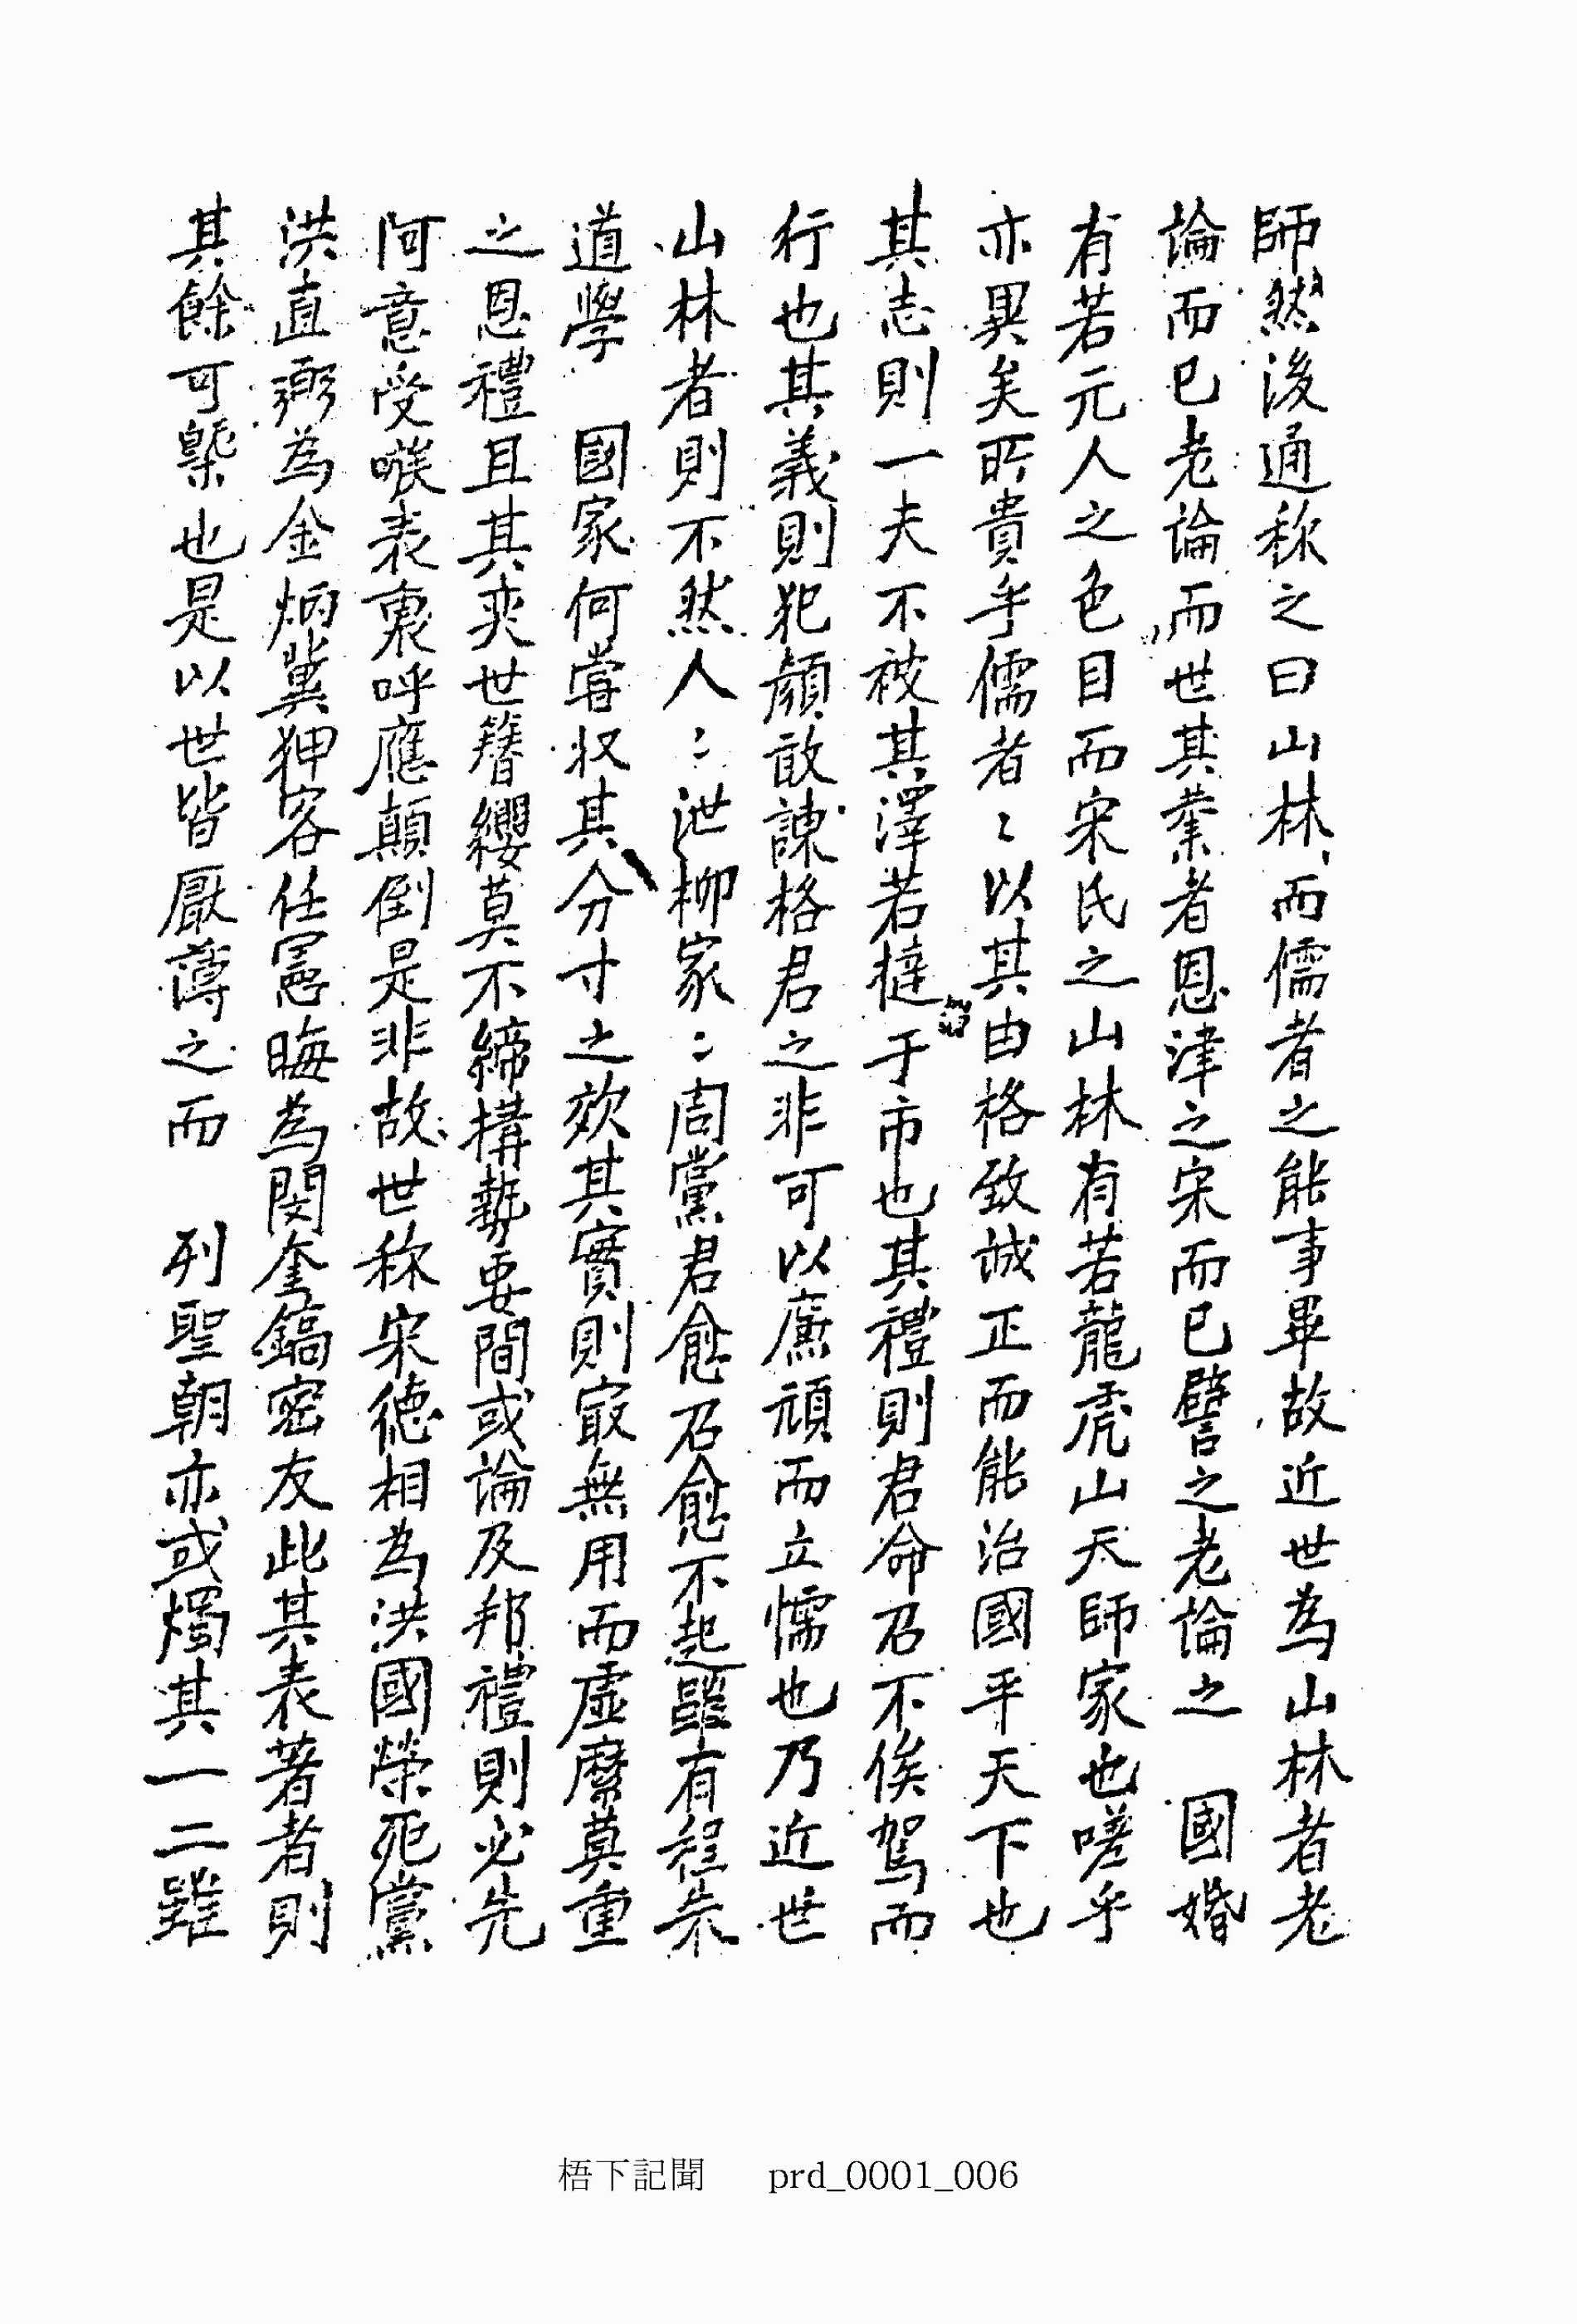 師然後通称之曰山林而儒者之能事畢故近世為山林者老
論而已老論而世其業者恩津之宋而已譬之老論之 國婚
有若元人之色目而宋氏之山林有若龍虎山天師家也嗟乎
亦異矣所貴乎儒者〻以其由格致誠正而能治國平天下也
其志則一夫不被其澤若撻于市也其禮則君命召不俟駕而
行也其義則犯顔敢諫格君之非可以廉頑而立懦也乃近世
山林者則不然人〻泄柳家〻周黨君愈召愈不起踞有程朱
道學 國家何嘗収其分寸之效其實則㝡無用而虛縻莫重
之恩禮且其奕世簪纓莫不締構勢要間或論及邦禮則必先
阿意受喉表裏呼應顛倒是非故世称宋德相為洪國榮死黨
洪直弼為金炳冀狎客任憲晦為閔奎鎬密友此其表著者則
其餘可槩也是以世皆厭薄之而 列聖朝亦或燭其一二雖
梧下記聞 prd_0001_006